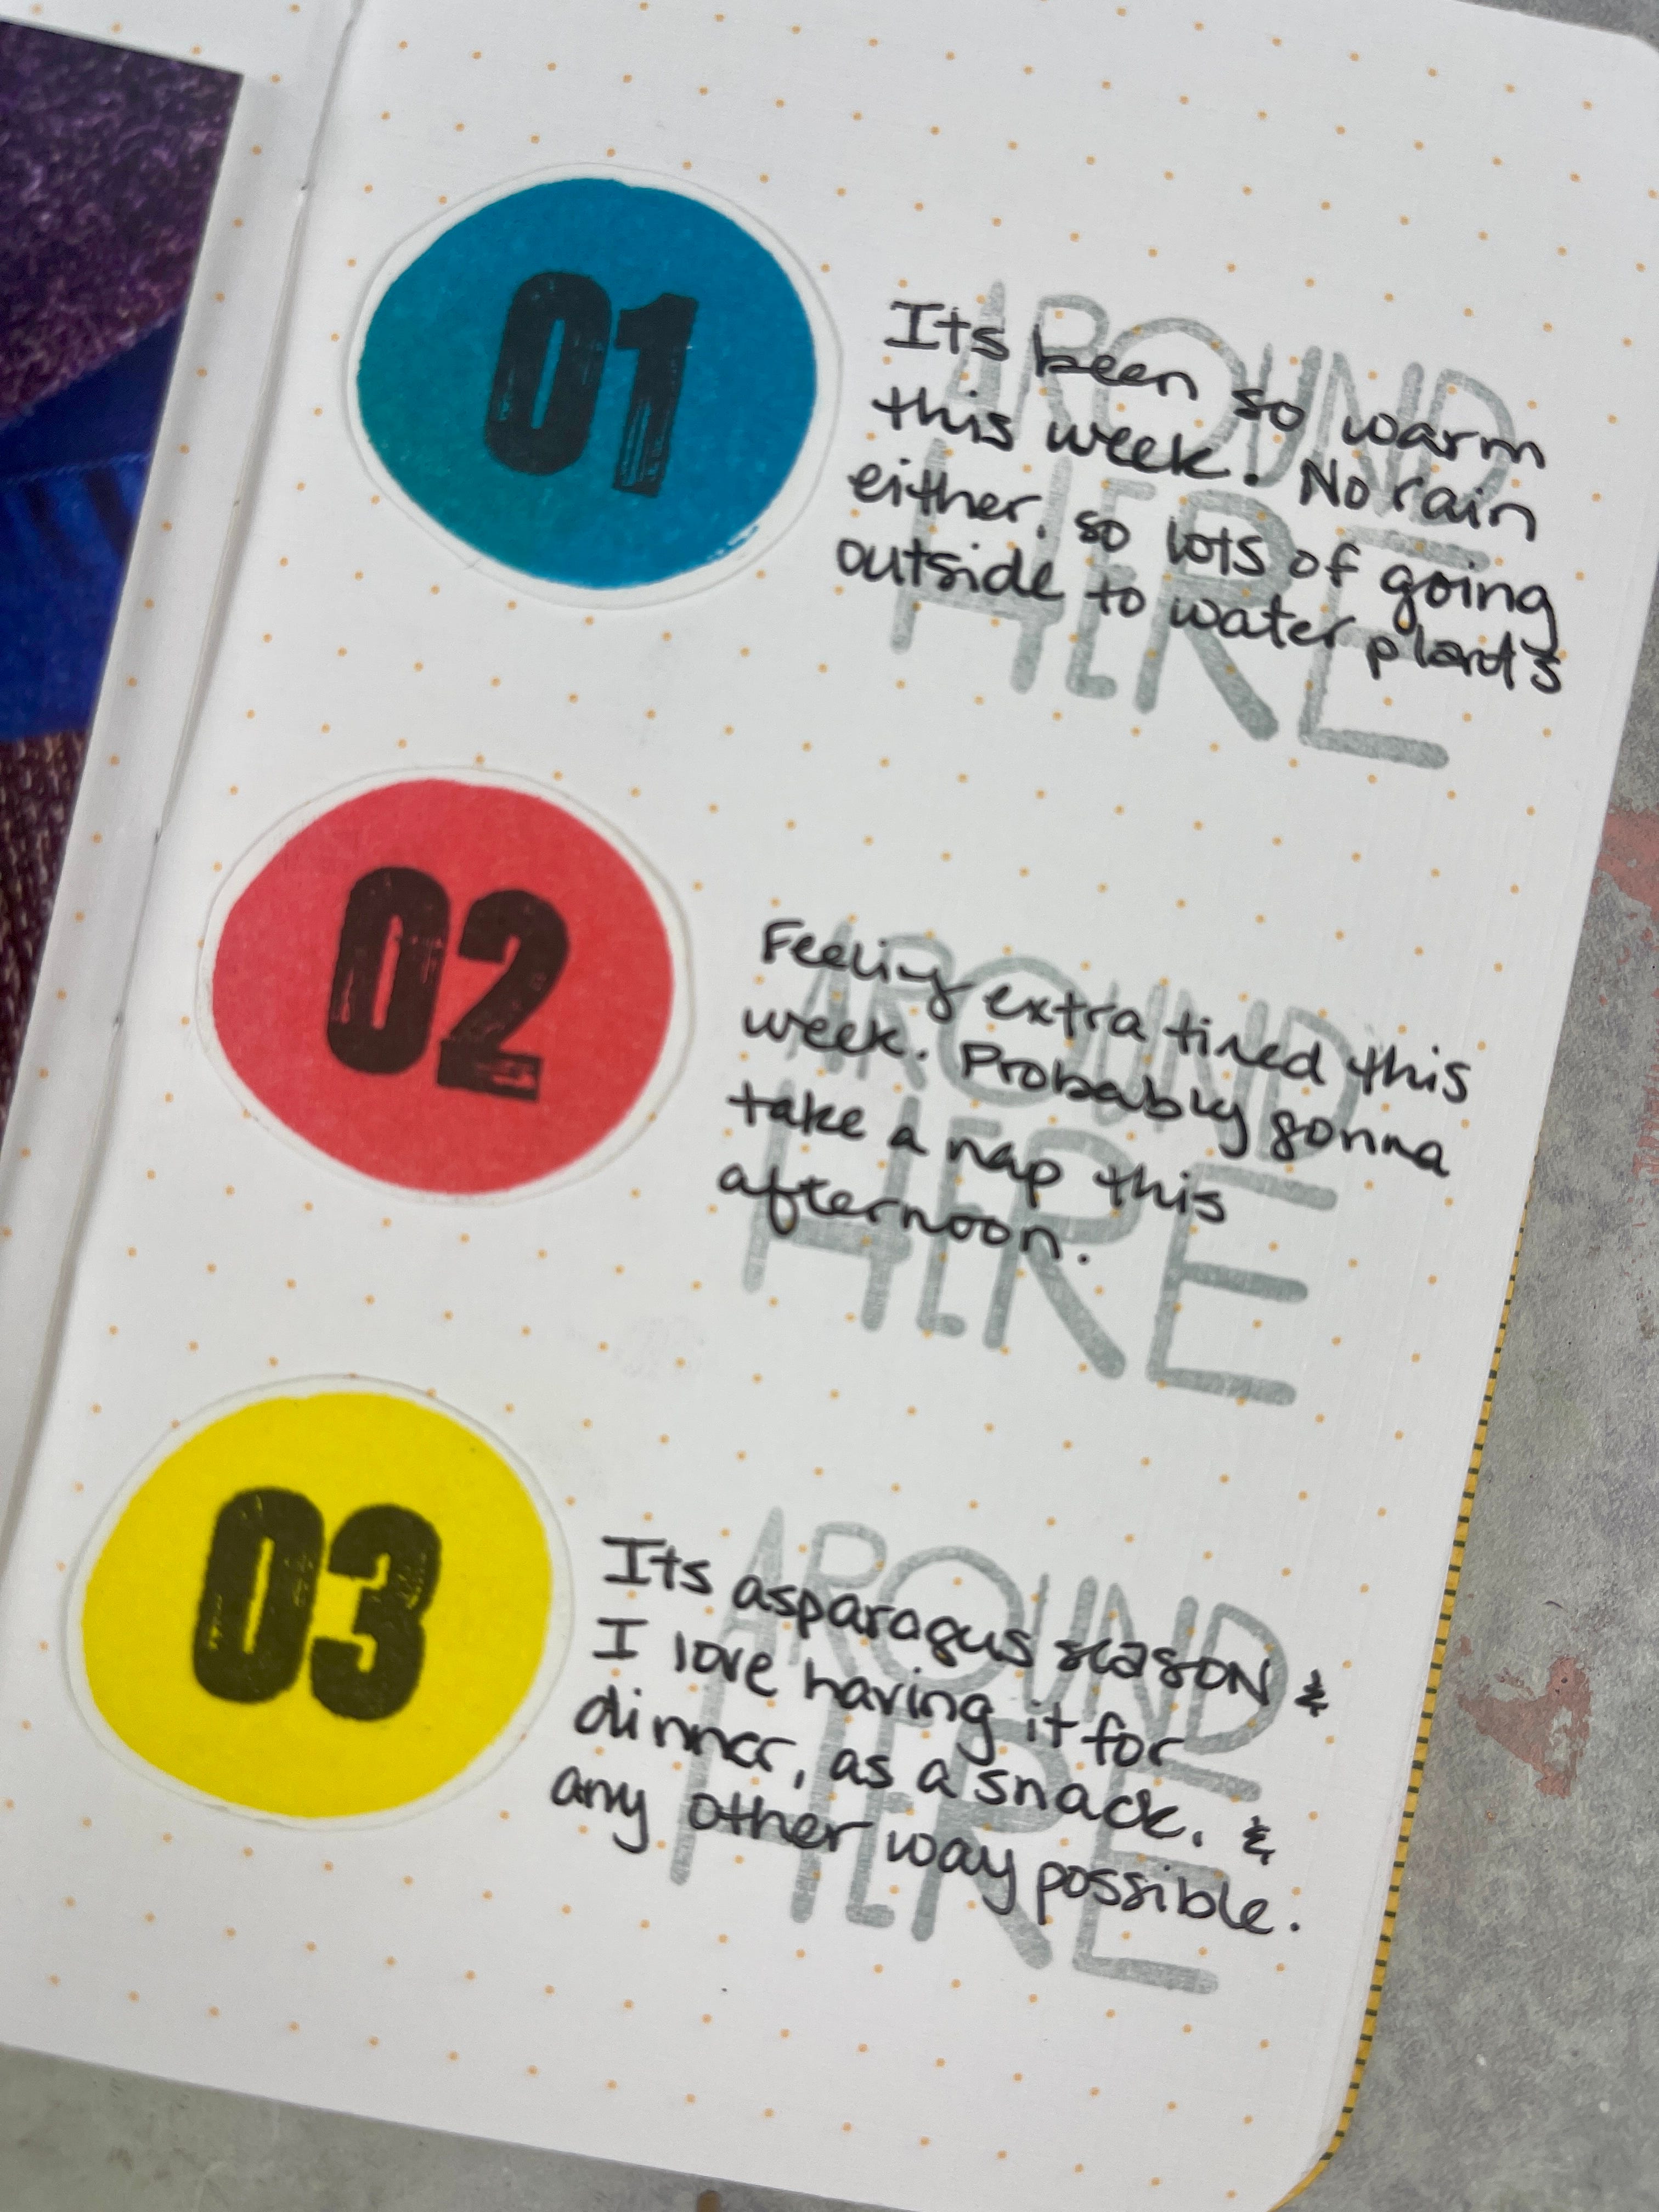 01
AROUND
HERE
Its been so warm
this week. No rain
either, so lots of going
outside to water plants
02
AROUND
HERE
Feeling extra tired this
week. Probably gonna
take a nap this
afternoon.
03
AROUND
HERE
Its asparagus season &
I love having it for
dinner, as a snack, &
any other way possible.